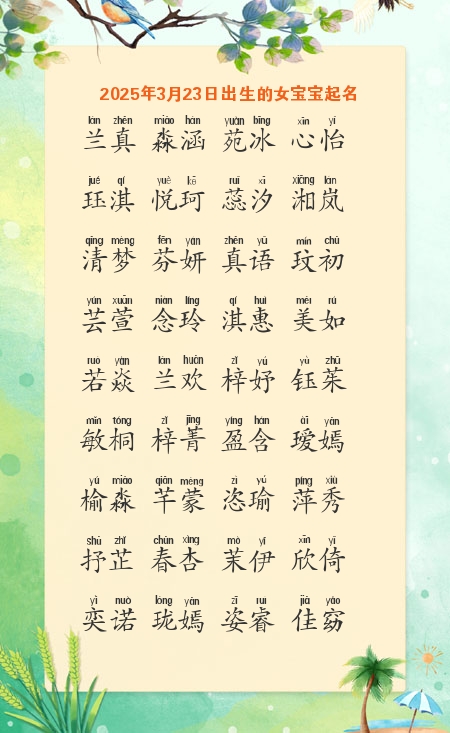 2025年3月23日出生的女宝宝起名
lán zhēn miǎo hán yuàn bīng xīn yí
兰真 淼涵 苑冰 心怡
jué qí yuè kē ruǐ xī xiāng lán
珏淇 悦珂 蕊汐 湘岚
qīng mèng fēn yán zhēn yǔ mín chū
清梦 芬妍 真语 玟初
yún xuān niàn líng qí huì měi rú
芸萱 念玲 淇惠 美如
ruò yàn lán huān zǐ yú yù zhū
若焱 兰欢 梓妤 钰茱
mǐn tóng zǐ jīng yíng hán ài yān
敏桐 梓菁 盈含 瑷嫣
yú miǎo qiān méng zì yú píng xiù
榆淼 芊蒙 恣瑜 萍秀
shū zhǐ chūn xìng mò yī xīn yǐ
抒芷 春杏 茉伊 欣倚
yì nuò lóng yān zī ruì jiā yǎo
奕诺 珑嫣 姿睿 佳窈